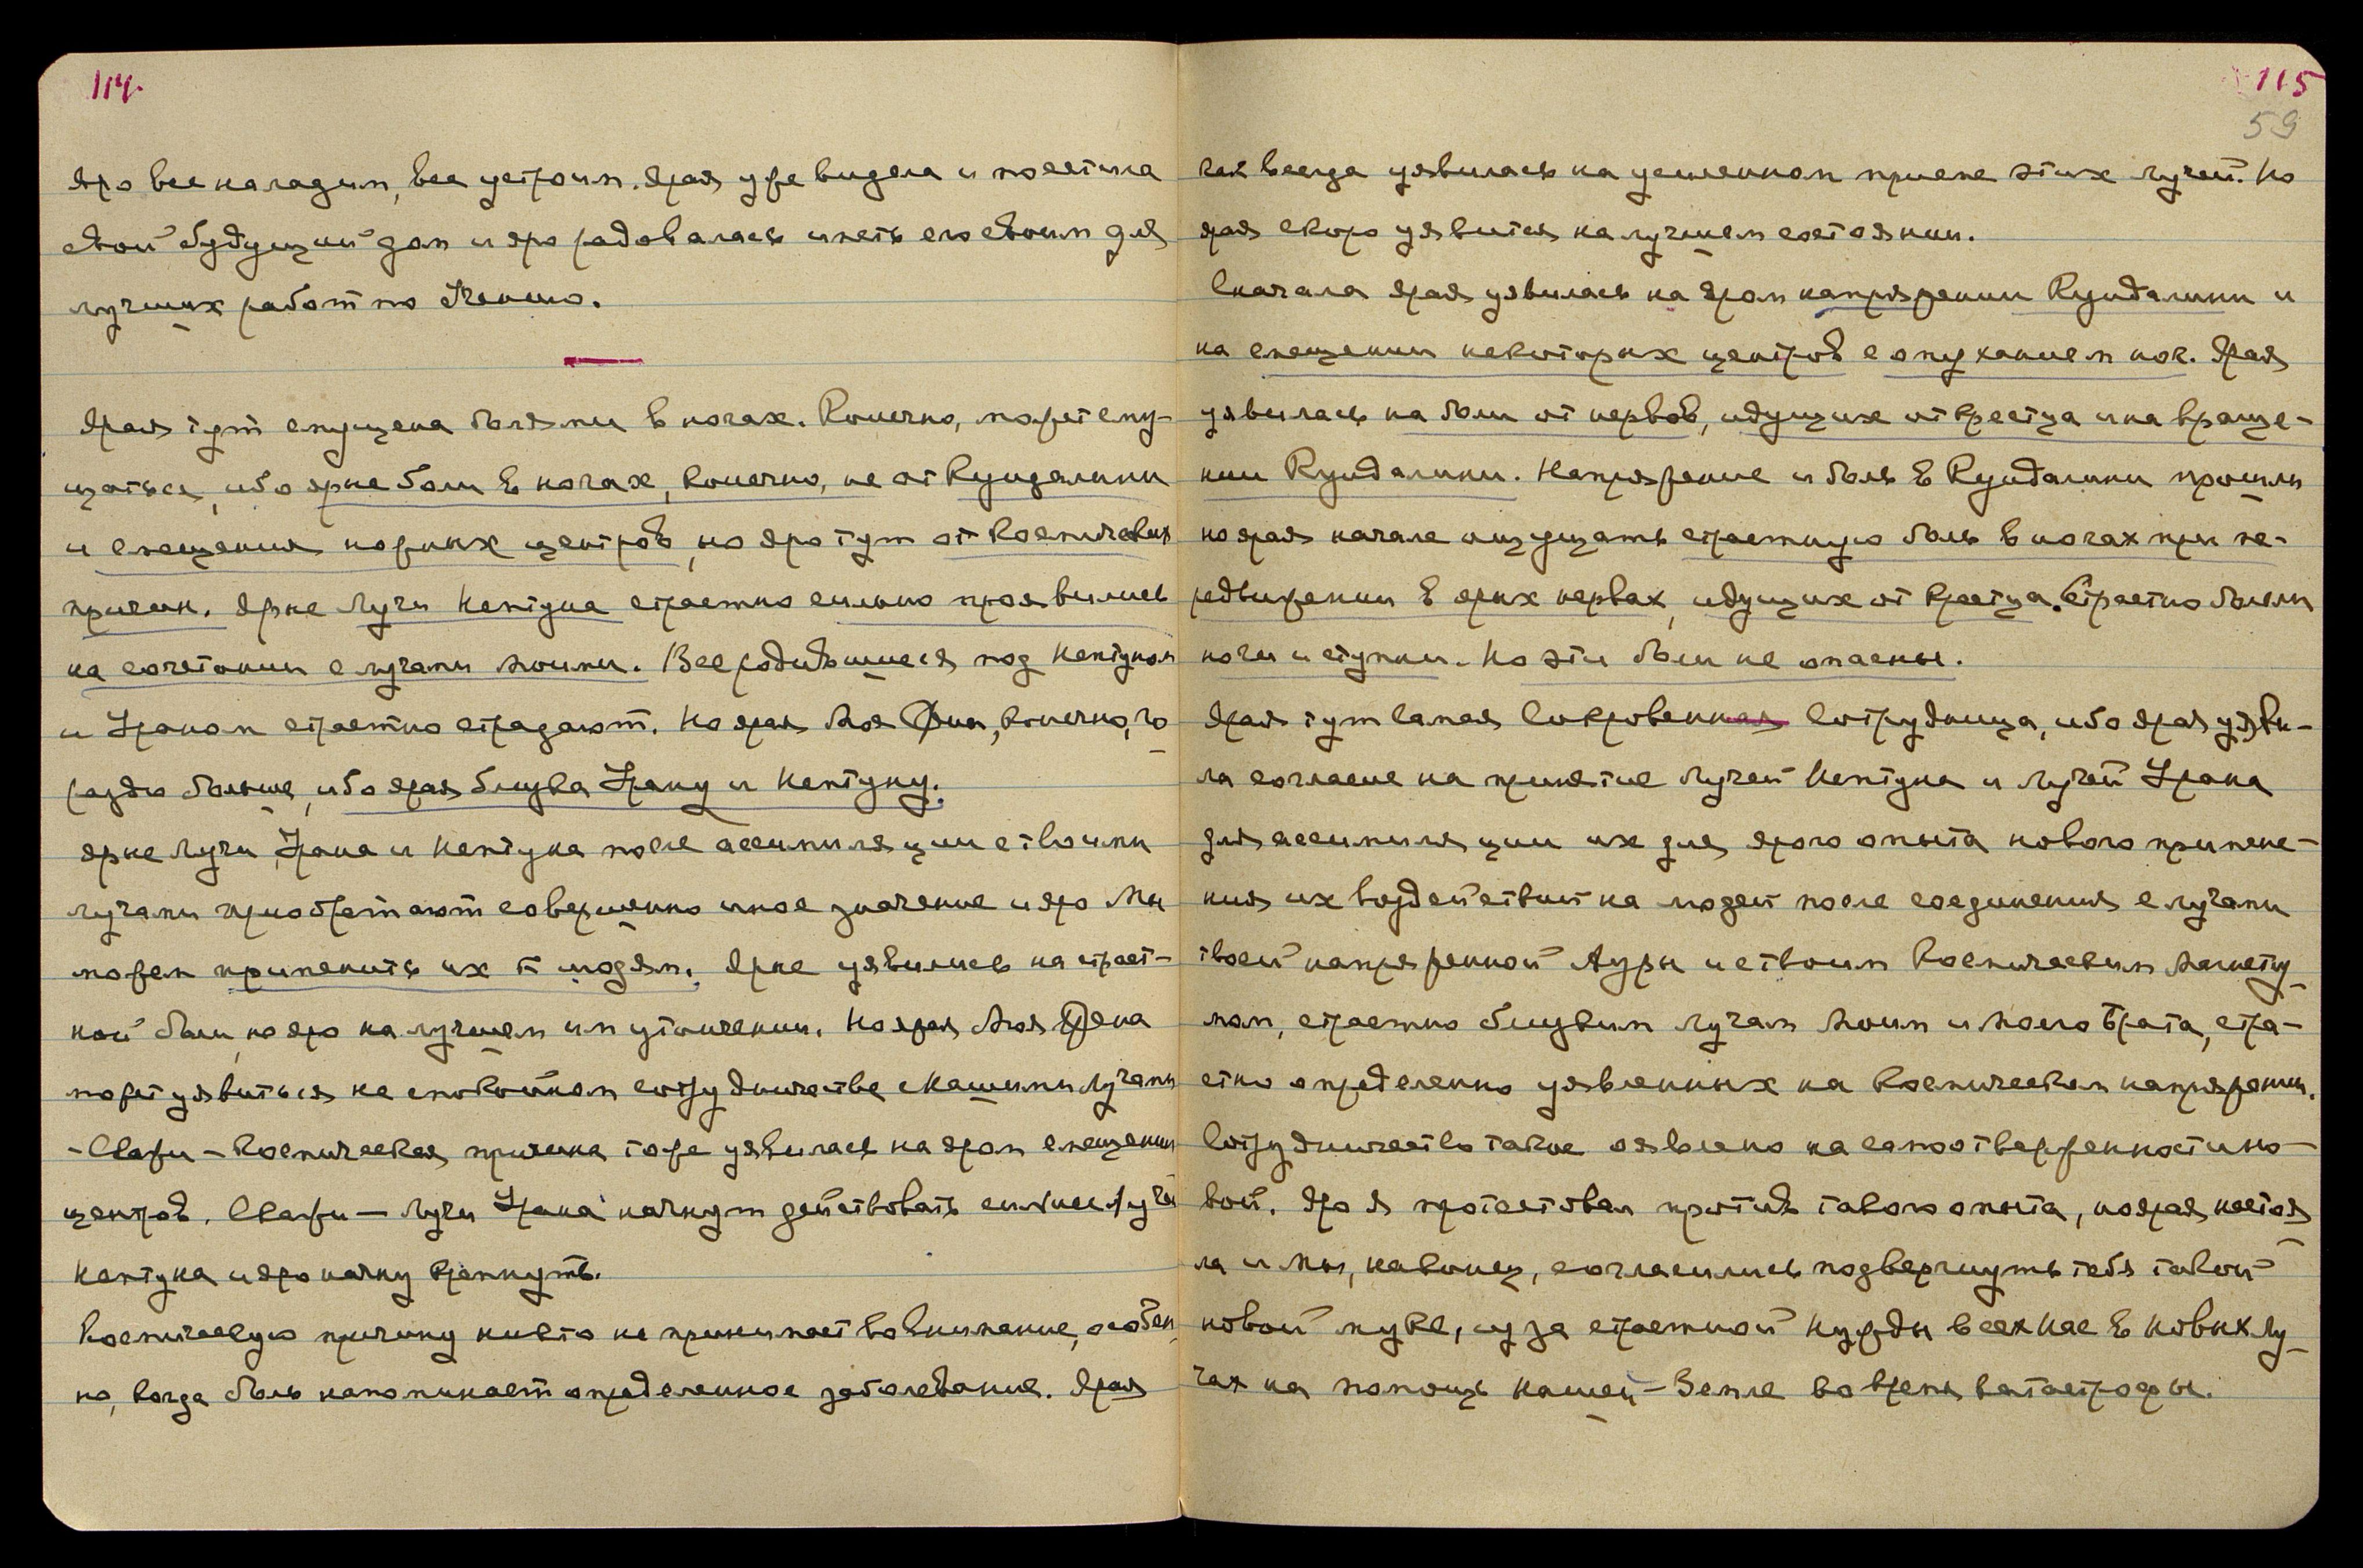 114.
Яро все наладим, все устроим. Ярая уже видела и посетила
свой будущий дом и яро радовалась иметь его своим для
лучших работ по Учению.
Ярая тут смущена болями в ногах. Конечно, может сму-
щаться, ибо ярые боли в ногах, конечно, не от Кундалини
и смещения ножных центров, но яро тут от космических
причин. Ярые Лучи Нептуна страстно сильно проявились
на сочетании с лучами Моими. Все родившиеся под Нептуном
и Ураном страстно страдают. Но ярая Моя, конечно, го-
раздо больше, ибо ярая близка Урану и Нептуну.
Ярые Лучи Урана и Нептуна после ассимиляции с твоими
лучами приобретают совершенно иное значение и яро Мы
можем применить их к людям. Ярые уявились на страст-
ной боли, но яро на лучшем им утончении. Но ярая Моя
может уявиться на спокойном сотрудничестве с Нашими Лучами
- Скажи - Космическая причина тоже уявилась на яром смещении
центров. Скажи - Лучи Урана начнут действовать сильнее Луча
Нептуна и яро начну крепнуть.
Космическую причину никто не принимает во внимание, особен-
но, когда боль напоминает определенное заболевание. Ярая
115
59
чая всегда уявилась на усиленном приеме этих лучей. Но
ярая скоро уявится на лучшем состоянии.
Сначала ярая уявилась на яром напряжении Кундалини и
на смещении некоторых центров с опуханием ног. Ярая
уявилась на боли от нервов, идущих от крестца и на враще-
нии Кундалини. Напряжение и боль в Кундалини прошли
но ярая начала ощущать страстную боль в ногах при пе-
редвижении в ярых нервах, идущих от крестца. Страстно болели
ноги и ступни. Но эти боли не опасны.
Ярая тут самая Сокровенная Сотрудница, ибо ярая уяви-
ла согласие на принятие Лучей Нептуна и Лучей Урана
для ассимиляции их для ярого опыта нового примене-
ния их воздействий на людей после соединения с лучами
твоей напряженной Ауры и с твоим Космическим Магнетиз-
мом, страстно близким Лучам Моим и Моего Брата, стра-
стно определенно уявленных на Космическом напряжении.
Сотрудничество такое оявлено на самоотверженности но-
вой. Яро Я протестовал против такого опыта, но ярая настоя-
ла и Мы, наконец, согласились подвергнуть тебя такой
новой муке, из за страстной нужды всех Нас в новых Лу-
чах на помощь Нашей - Земле во время катастрофы.